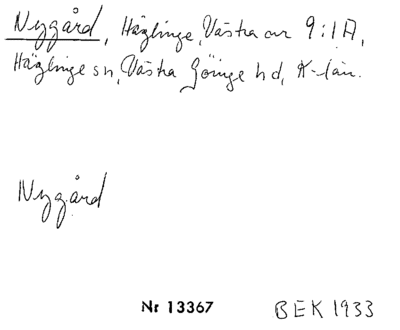 Nygård, Häglinge, Västra om 9:1A,
Häglinge sn, Västra Göinge hd, K-län.
Nygård
Nr 13367
BEK 1933